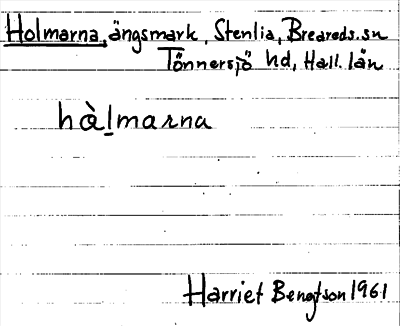 Holmarna, ängsmark, Stenlia, Breareds. sn
Tönnersjö hd, Hall. län
hàl̲marna
Harriet Bengtson 1961